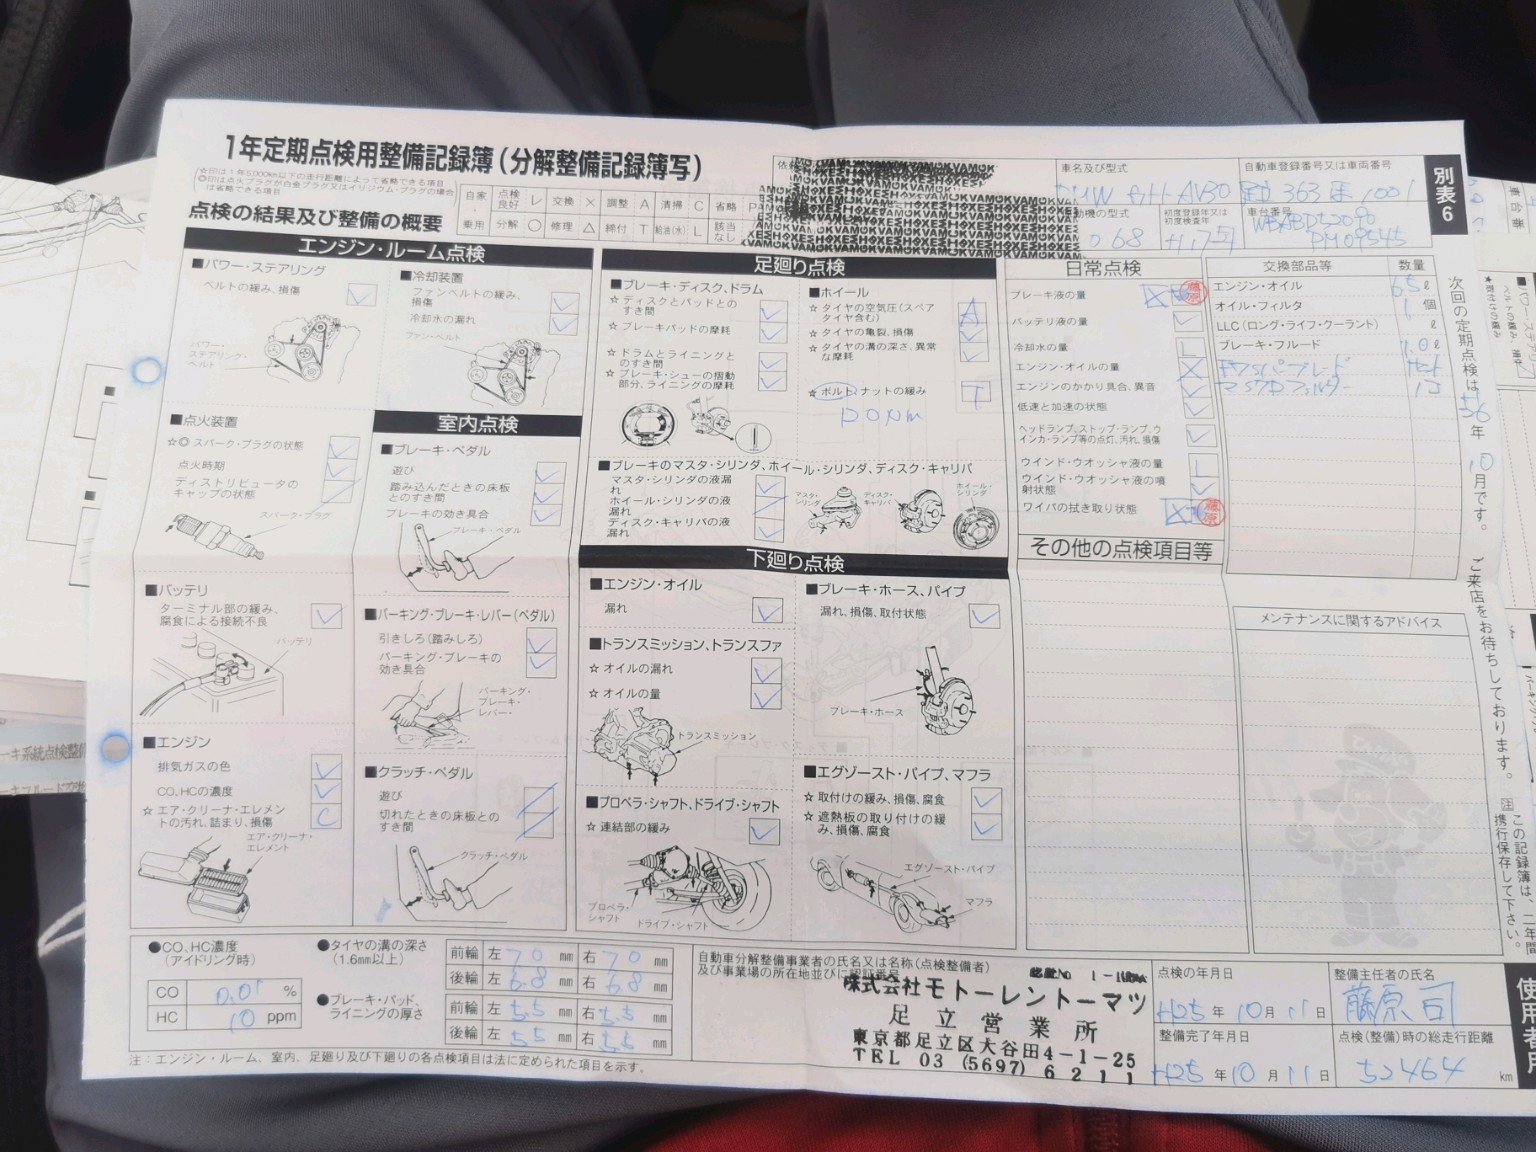 1年定期点検用整備記録簿(分解整備記録簿写)
☆印は1年5,000km以下の走行距離によって省略できる項目
◎印は点火プラグが白金プラグ又はイリジウム・プラグの場合は省略できる項目
点検の結果及び整備の概要
自家乗用
点検良好 レ 交換 × 調整 A 清掃 C 省略 P
分解 ○ 修理 △ 締付 T 給油(水) L 該当なし
車名及び型式
自動車登録番号又は車両番号
別表6
初度登録年又は初度検査年
車台番号
WBABD52090
PM09545
エンジン・ルーム点検
■パワー・ステアリング
ベルトの緩み、損傷
パワー・ステアリング・ベルト
■冷却装置
ファンベルトの緩み、損傷
冷却水の漏れ
ファン・ベルト
■点火装置
☆◎ スパーク・プラグの状態
点火時期
ディストリビュータのキャップの状態
スパーク・プラグ
■バッテリ
ターミナル部の緩み、腐食による接続不良
バッテリ
■エンジン
排気ガスの色
CO、HCの濃度
☆ エア・クリーナ・エレメントの汚れ、詰まり、損傷
C
エア・クリーナ・エレメント
室内点検
■ブレーキ・ペダル
遊び
踏み込んだときの床板とのすき間
ブレーキの効き具合
ブレーキ・ペダル
■パーキング・ブレーキ・レバー(ペダル)
引きしろ(踏みしろ)
パーキング・ブレーキの効き具合
パーキング・ブレーキ・レバー
■クラッチ・ペダル
遊び
切れたときの床板とのすき間
クラッチ・ペダル
足廻り点検
■ブレーキ・ディスク、ドラム
☆ ディスクとパッドとのすき間
☆ ブレーキパッドの摩耗
☆ ドラムとライニングとのすき間
☆ ブレーキ・シューの摺動部分、ライニングの摩耗
■ホイール
☆ タイヤの空気圧(スペアタイヤ含む)
A
☆ タイヤの亀裂、損傷
☆ タイヤの溝の深さ、異常な摩耗
☆ ボルト、ナットの緩み
T
■ブレーキのマスタ・シリンダ、ホイール・シリンダ、ディスク・キャリパ
マスタ・シリンダの液漏れ
ホイール・シリンダの液漏れ
ディスク・キャリパの液漏れ
マスタ・シリンダ
ディスク・キャリパ
ホイール・シリンダ
下廻り点検
■エンジン・オイル
漏れ
■トランスミッション、トランスファ
☆ オイルの漏れ
☆ オイルの量
トランスミッション
■プロペラ・シャフト、ドライブ・シャフト
☆ 連結部の緩み
プロペラ・シャフト
ドライブ・シャフト
■ブレーキ・ホース、パイプ
漏れ、損傷、取付状態
ブレーキ・ホース
■エグゾースト・パイプ、マフラ
☆ 取付けの緩み、損傷、腐食
☆ 遮熱板の取り付けの緩み、損傷、腐食
エグゾースト・パイプ
マフラ
日常点検
ブレーキ液の量
藤原
バッテリ液の量
冷却水の量
エンジン・オイルの量
エンジンのかかり具合、異音
低速と加速の状態
ヘッドランプ、ストップ・ランプ、ウインカ・ランプ等の点灯、汚れ、損傷
ウインド・ウオッシャ液の量
ウインド・ウオッシャ液の噴射状態
ワイパの拭き取り状態
藤原
その他の点検項目等
交換部品等 数量
エンジン・オイル 6.5 ℓ
オイル・フィルタ 1 個
LLC(ロング・ライフ・クーラント) ℓ
ブレーキ・フルード 1.0 ℓ
メンテナンスに関するアドバイス
次回の定期点検は 年 10 月です。 ご来店をお待ちしております。
この記録簿は、二年間携行保存して下さい。
使用者用
●CO、HC濃度(アイドリング時)
CO 0.01 %
HC 10 ppm
●タイヤの溝の深さ(1.6mm以上)
前輪 左 7.0 mm 右 7.0 mm
後輪 左 6.8 mm 右 6.8 mm
●ブレーキ・パッド、ライニングの厚さ
前輪 左 5.5 mm 右 5.5 mm
後輪 左 5.5 mm 右 5.5 mm
注:エンジン・ルーム、室内、足廻り及び下廻りの各点検項目は法に定められた項目を示す。
自動車分解整備事業者の氏名又は名称(点検整備者)及び事業場の所在地並びに認証番号
株式会社モトーレントーマツ
足立営業所
東京都足立区大谷田4-1-25
TEL 03 (5697) 6211
点検の年月日
H25 年 10 月 11 日
整備主任者の氏名
藤原 司
整備完了年月日
H25 年 10 月 11 日
点検(整備)時の総走行距離
52464 km